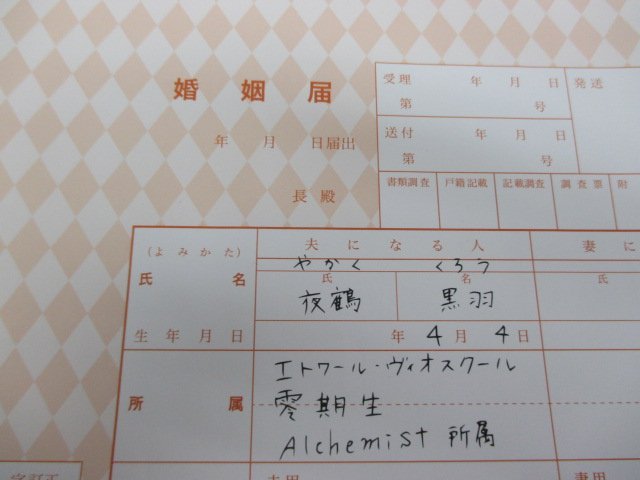 婚姻届
年 月 日届出
長殿
受理 年 月 日
第 号
発送
送付 年 月 日
第 号
書類調査 戸籍記載 記載調査 調査票 附
夫になる人 妻に
(よみかた) やかく くろう
氏 名 氏 名 氏
夜鶴 黒羽
生年月日 年 4月 4日
所属 エトワール・ヴィオスクール
零期生
Alchemist 所属